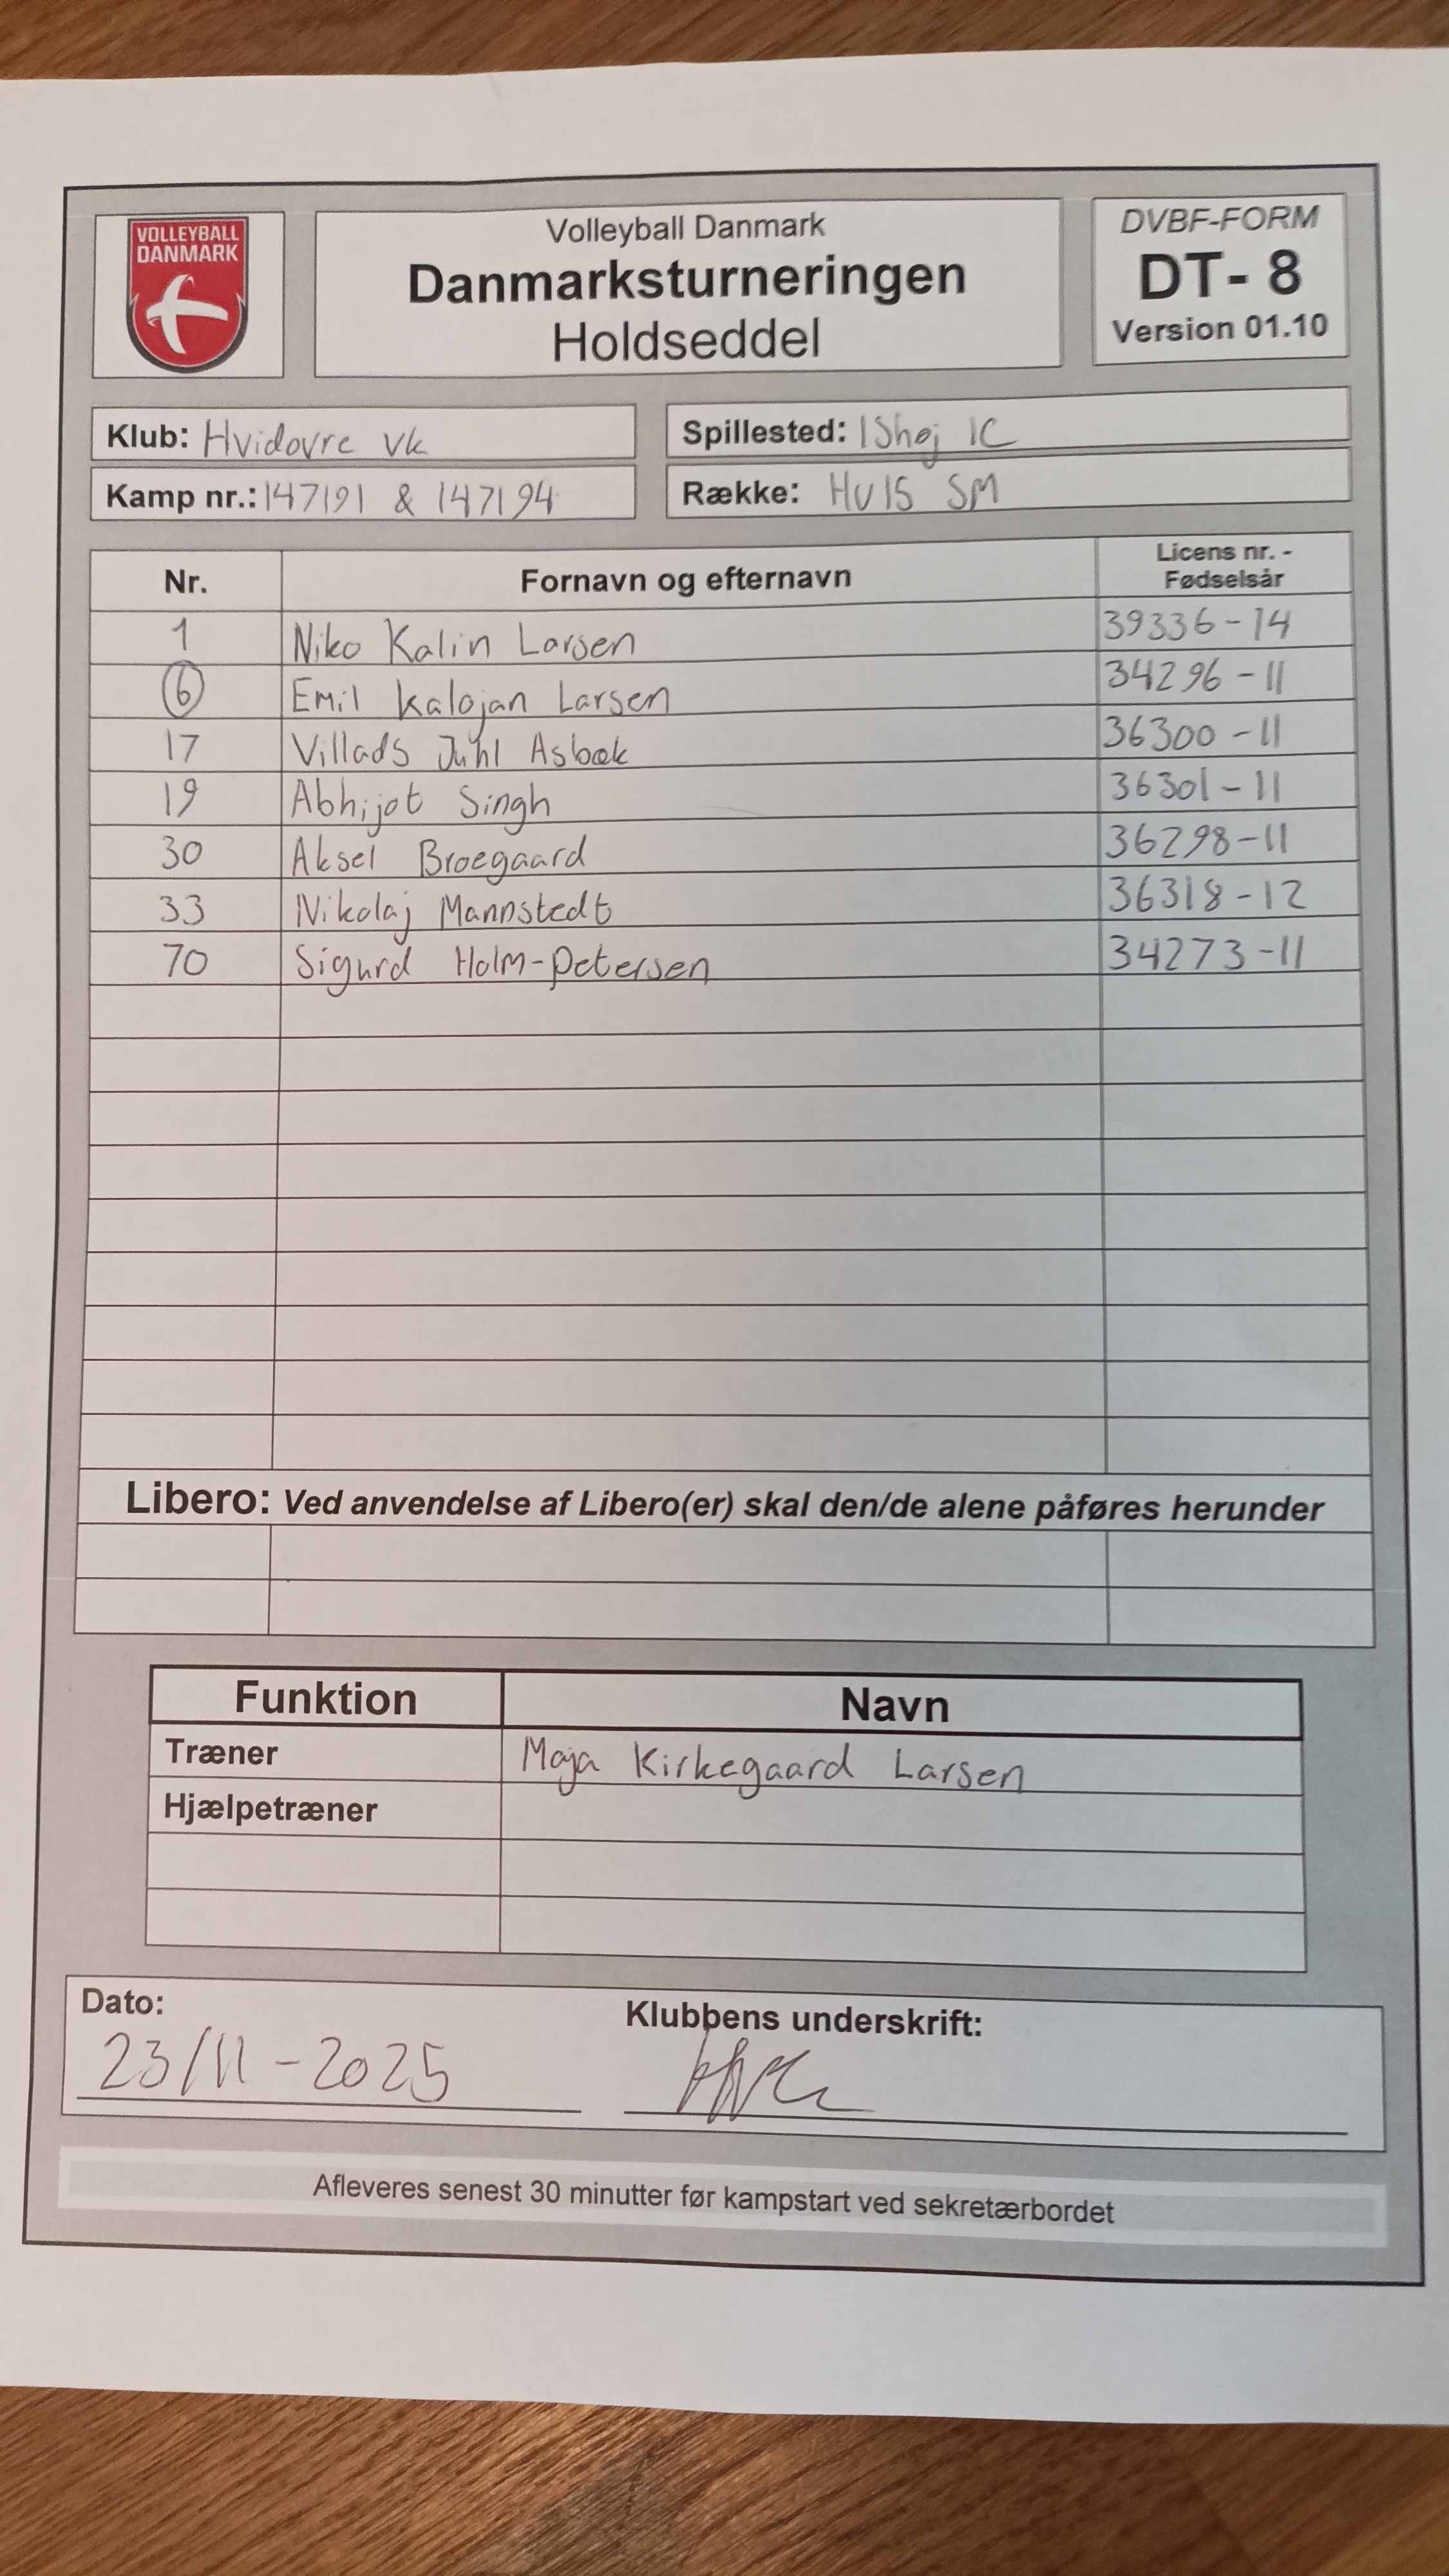 VOLLEYBALL
DANMARK
Volleyball Danmark
Danmarksturneringen
Holdseddel
DVBF-FORM
DT- 8
Version 01.10
Klub: Hvidovre vk
Spillested: IShøj IC
Kamp nr.: 147191 & 147194
Række: HU15 SM
Nr. Fornavn og efternavn Licens nr. -
Fødselsår
1 Niko Kalin Larsen 39336-14
6 Emil Kalojan Larsen 34296-11
17 Villads Juhl Asbæk 36300-11
19 Abhijot Singh 36301-11
30 Aksel Broegaard 36298-11
33 Nikolaj Mannstedt 36318-12
70 Sigurd Holm-Petersen 34273-11
Libero: Ved anvendelse af Libero(er) skal den/de alene påføres herunder
Funktion Navn
Træner Maja Kirkegaard Larsen
Hjælpetræner
Dato: Klubbens underskrift:
23/11-2025
Afleveres senest 30 minutter før kampstart ved sekretærbordet